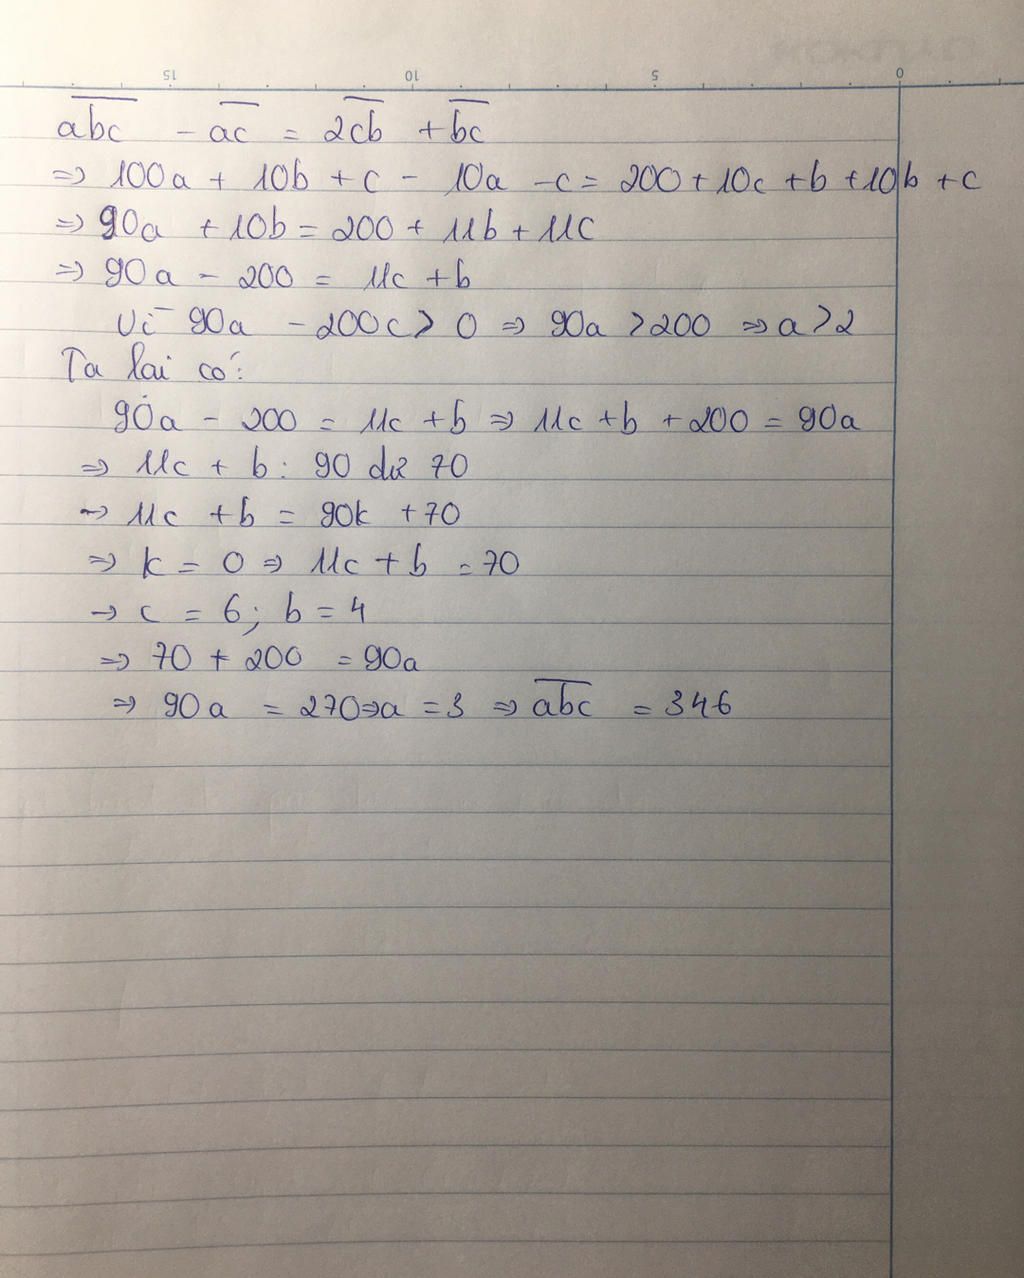 15 10 5 0
abc - ac = 2cb + bc
=> 100a + 10b + c - 10a - c = 200 + 10c + b + 10b + c
=> 90a + 10b = 200 + 11b + 11c
=> 90a - 200 = 11c + b
Vì 90a - 200c > 0 => 90a > 200 => a > 2
Ta lại có:
90a - 200 = 11c + b => 11c + b + 200 = 90a
=> 11c + b : 90 dư 70
=> 11c + b = 90k + 70
=> k = 0 => 11c + b = 70
-> c = 6; b = 4
=> 70 + 200 = 90a
=> 90a = 270 => a = 3 => abc = 346